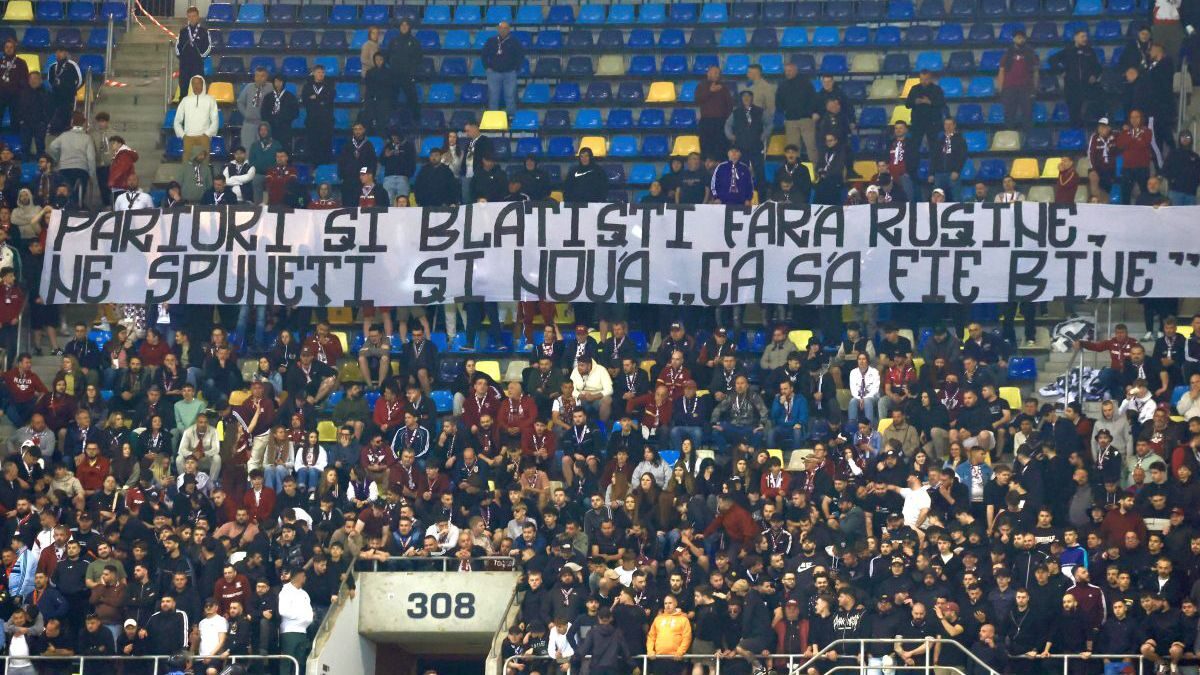 PARIORI ȘI BLATIȘTI FĂRĂ RUȘINE,
NE SPUNEȚI ȘI NOUĂ „CA SĂ FIE BINE”
308